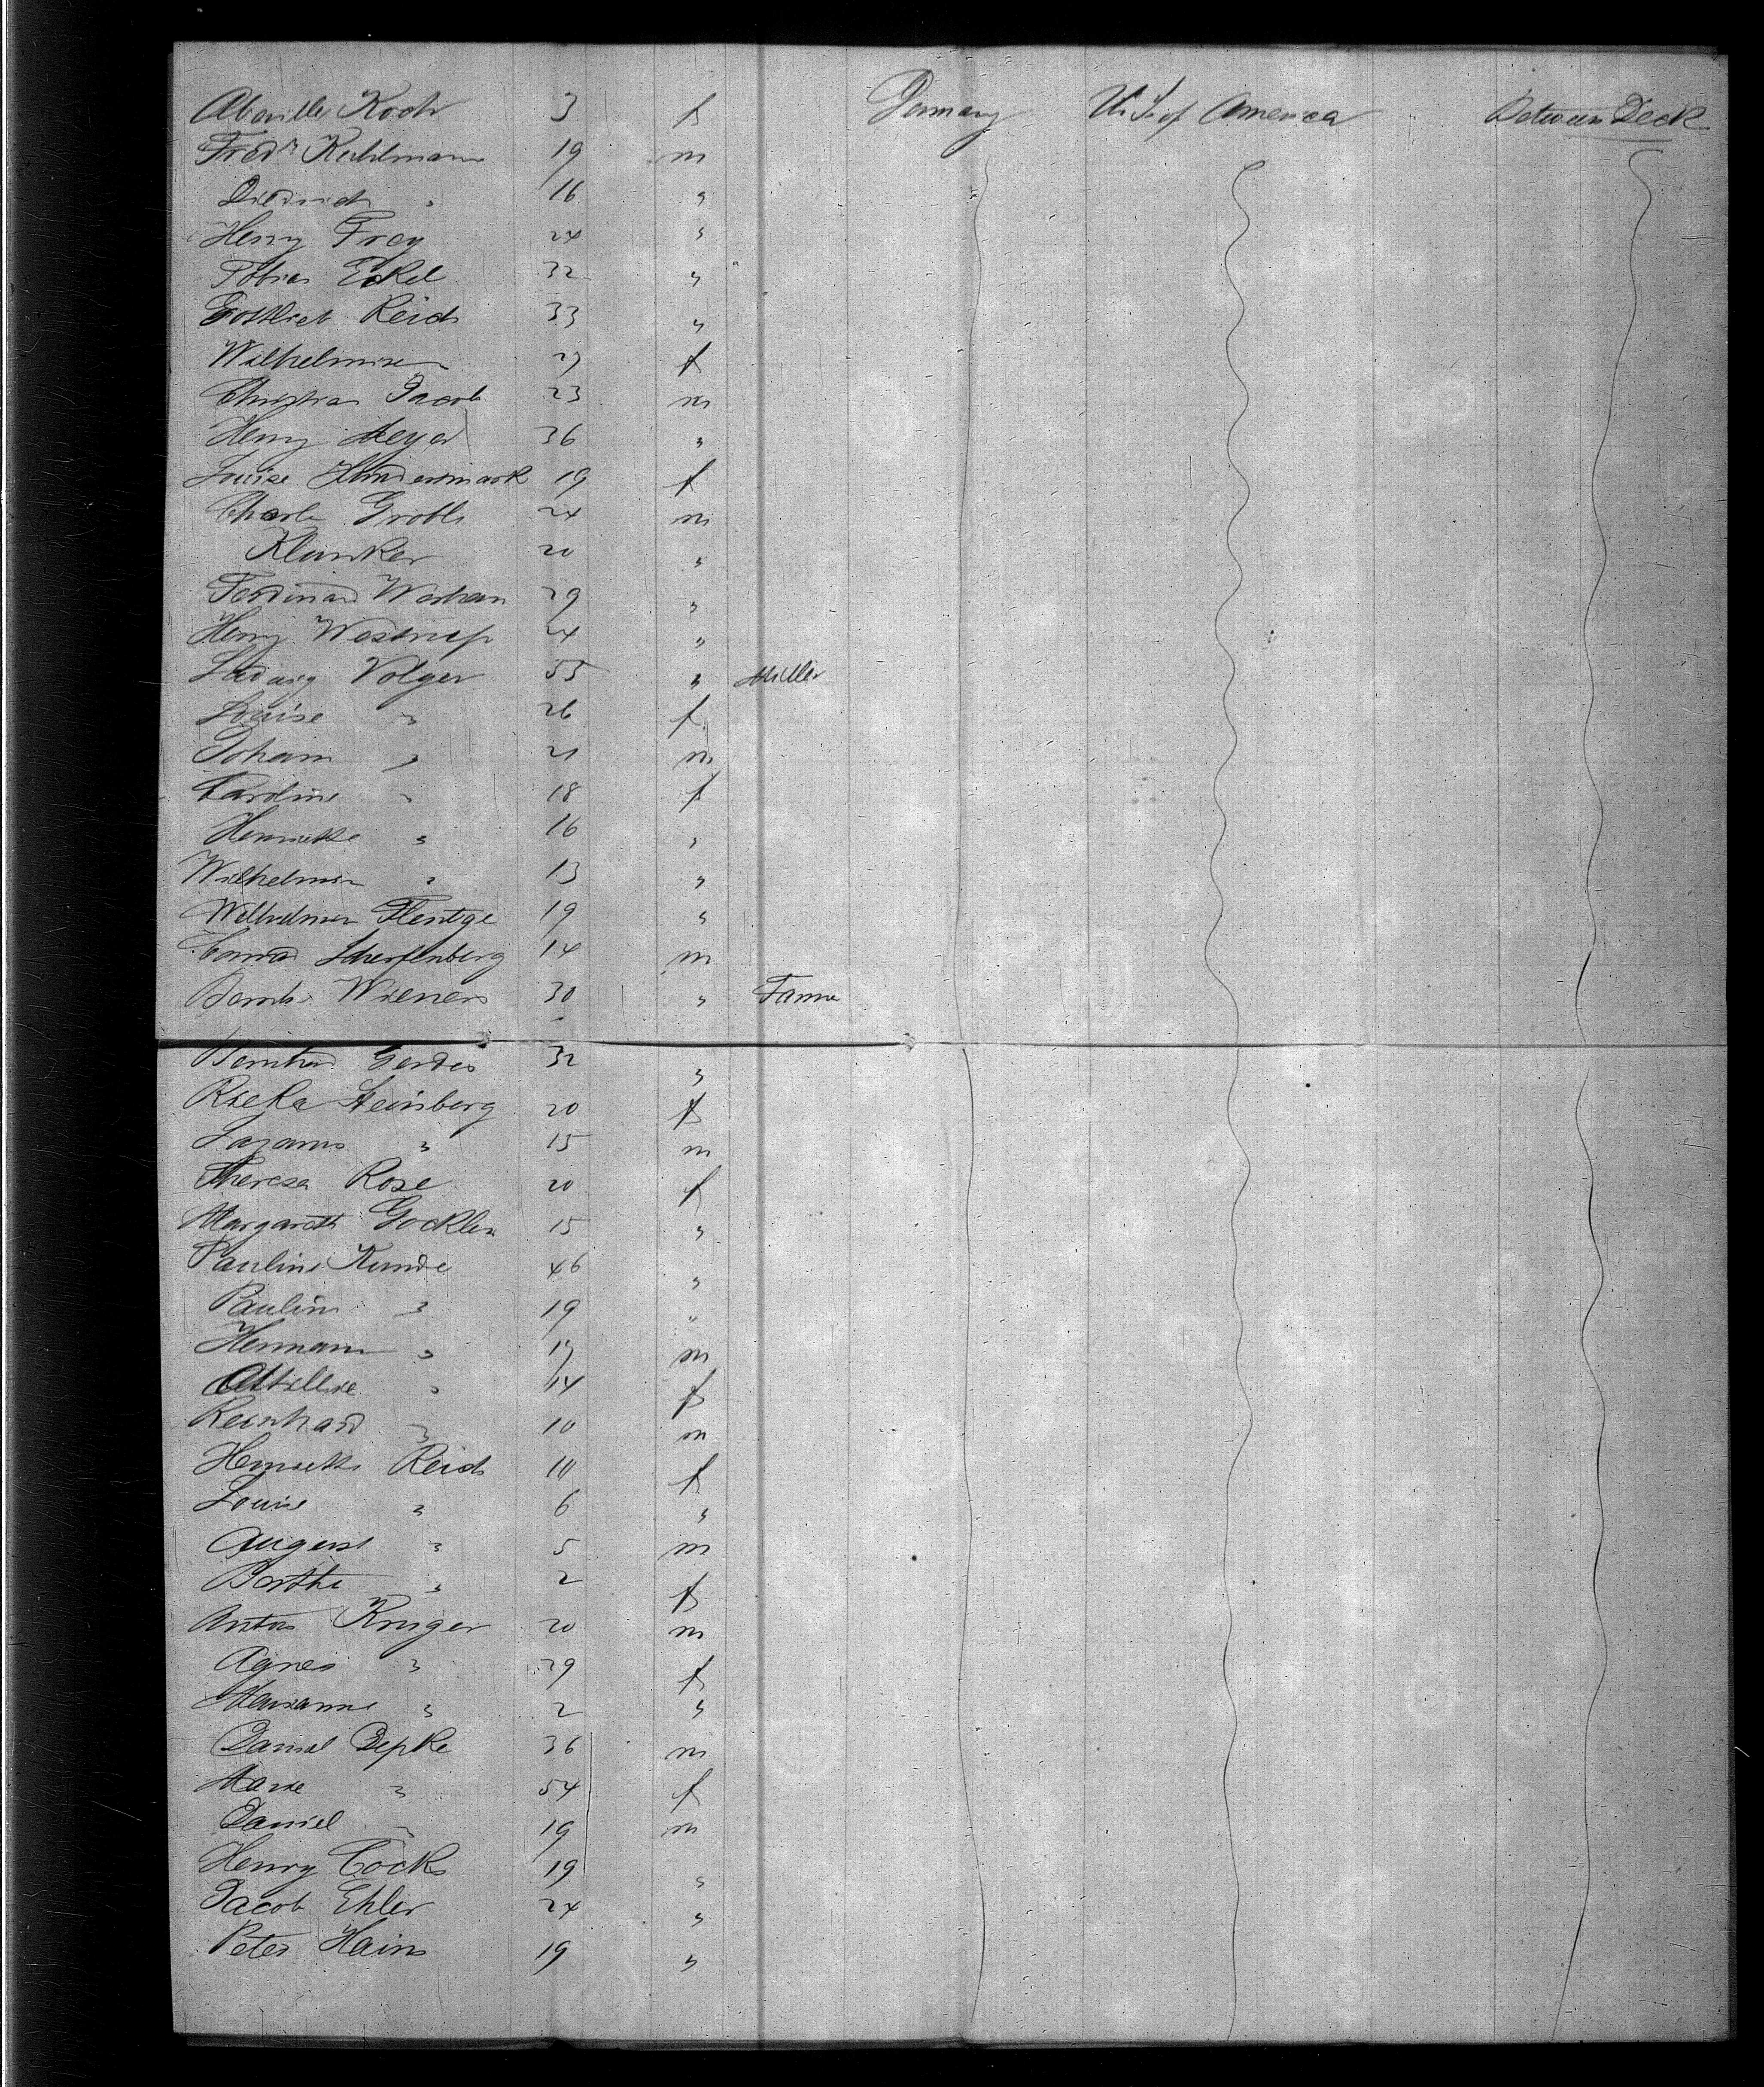 Koch 3 f Germany U. S. of America Between Deck
Fred'k Kuhlmann 19 m
Diedrich " 16 "
Henry Frey 24 "
Tobias Eckel 32 "
Gottlieb Reich 33 "
Wilhelmine f
Christian Jacob 23 m
Henry Meyer 36 "
Louise Hundesmark 19 f
Charle Grobb 24 m
Klunker 20 "
Ferdinand 29 "
Henry Westrup 24 "
Ludwig Volger 55 " Miller
Louise " 26 f
Johann " 21 m
Caroline " 18 f
Henriette " 16 "
Wilhelmin " 13 "
Wilhelmin Flentge 19 "
Conrad Scherfenberg 14 m
Bernh. Wieners 30 " Farmer
Bernhard Gerdes 32 "
Rieka Steinberg 20 f
Lazarus " 15 m
Theresa Rose 20 f
Margareth Gocklen 15 "
Pauline Kunde 46 "
Pauline " 19 "
Hermann " 17 m
Ottillie " 14 f
Reinhard " 10 m
Henriette Reich f
Louise " 6 "
August " 5 m
Berthe " 2 f
Anton Kruger 20 m
Agnes " 29 f
Marianne " 2 "
Daniel Depke 36 m
Marie " 54 f
Daniel " 19 m
Henry Cocks 19 "
Jacob Ehler 24 "
Peter Hains 19 "